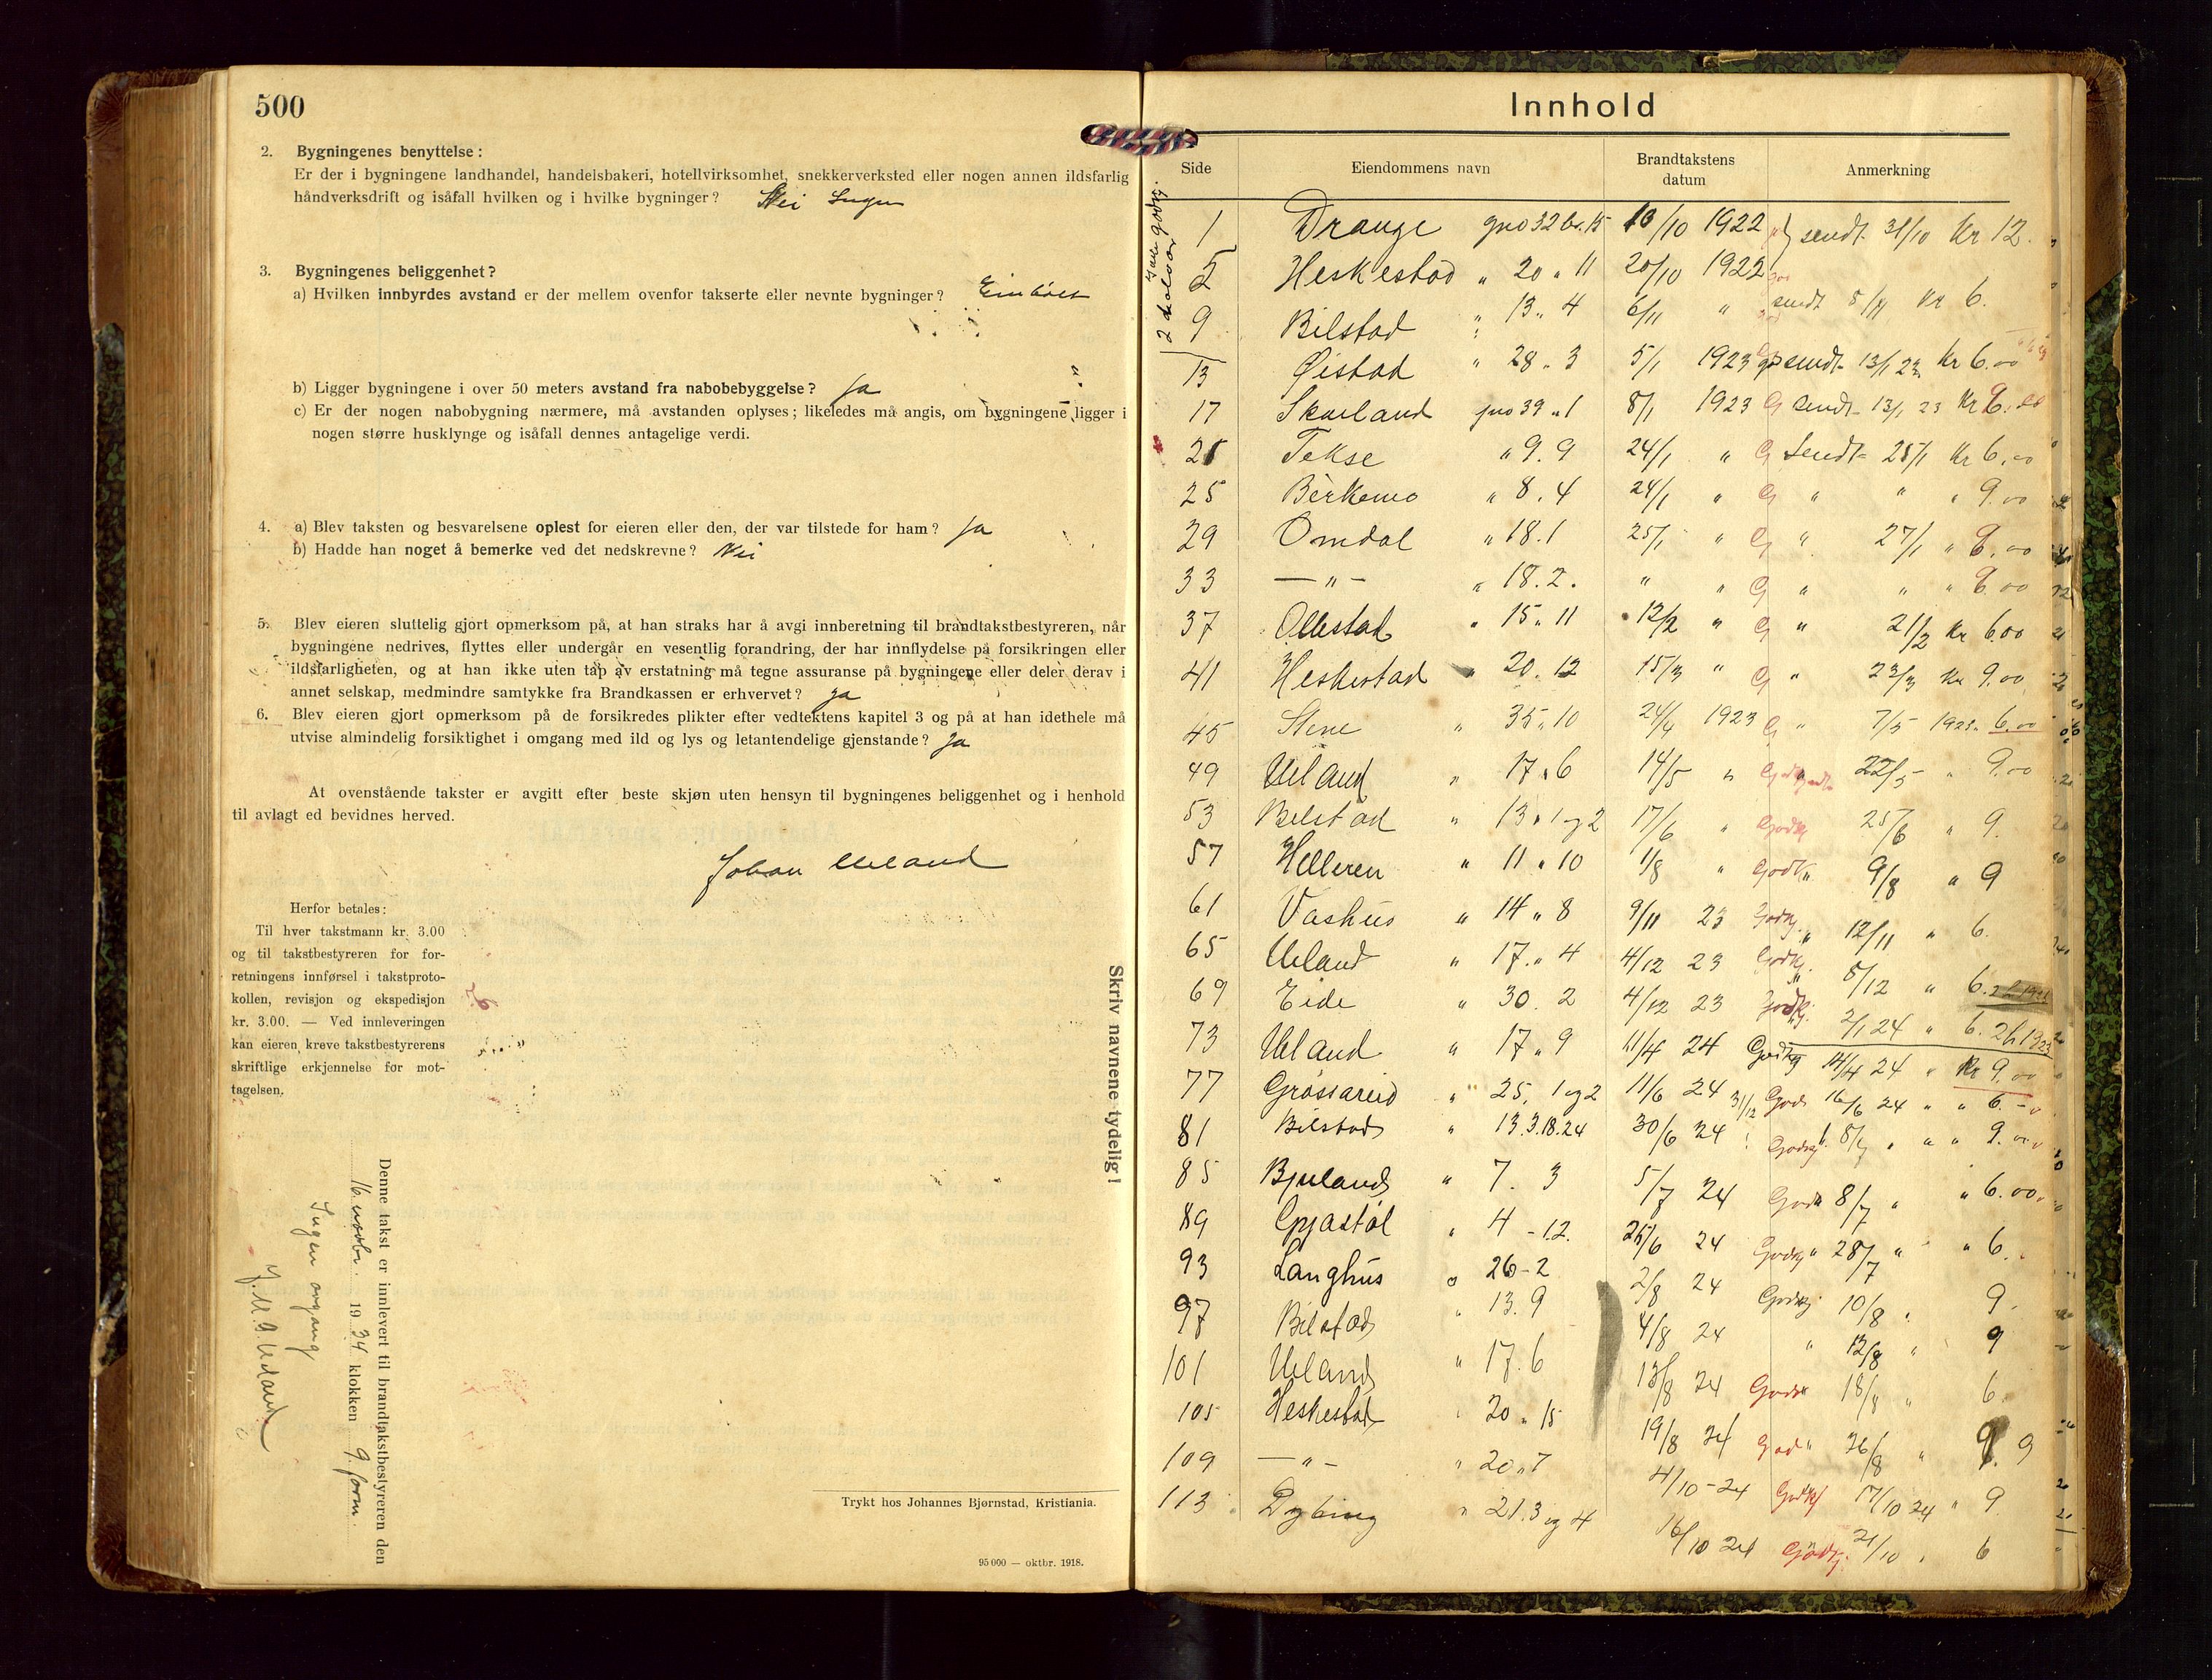 500
2. Bygningenes benyttelse:
Er der i bygningene landhandel, handelsbakeri, hotellvirksomhet, snekkerverksted eller nogen annen ildsfarlig
håndverksdrift og isåfall hvilken og i hvilke bygninger? Nei Ingen
3. Bygningenes beliggenhet?
a) Hvilken innbyrdes avstand er der mellem ovenfor takserte eller nevnte bygninger?
b) Ligger bygningene i over 50 meters avstand fra nabobebyggelse? Ja
c) Er der nogen nabobygning nærmere, må avstanden oplyses; likeledes må angis, om bygningene ligger i
nogen større husklynge og isåfall dennes antagelige verdi.
4. a) Blev taksten og besvarelsene oplest for eieren eller den, der var tilstede for ham? Ja
b) Hadde han noget å bemerke ved det nedskrevne? Nei
5. Blev eieren sluttelig gjort opmerksom på, at han straks har å avgi innberetning til brandtakstbestyreren, når
bygningene nedrives, flyttes eller undergår en vesentlig forandring, der har innflydelse på forsikringen eller
ildsfarligheten, og at han ikke uten tap av erstatning må tegne assuranse på bygningene eller deler derav i
annet selskap, medmindre samtykke fra Brandkassen er erhvervet? Ja
6. Blev eieren gjort opmerksom på de forsikredes plikter efter vedtektens kapitel 3 og på at han idethele må
utvise almindelig forsiktighet i omgang med ild og lys og letantendelige gjenstande? Ja
At ovenstående takster er avgitt efter beste skjøn uten hensyn til bygningenes beliggenhet og i henhold
til avlagt ed bevidnes herved.
Johan Ueland
Herfor betales:
Til hver takstmann kr. 3.00
og til takstbestyreren for for-
retningens innførsel i takstproto-
kollen, revisjon og ekspedisjon
kr. 3.00. — Ved innleveringen
kan eieren kreve takstbestyrerens
skriftlige erkjennelse for mot-
tagelsen.
Skriv navnene tydelig!
Denne takst er innlevert til brandtakstbestyreren den
16 novbr. 1934 klokken 9 form.
Ingen avgang
Trykt hos Johannes Bjørnstad, Kristiania.
95 000 — oktbr. 1918.
Innhold
Side Eiendommens navn Brandtakstens datum Anmerkning
1 Drange gno 32 br. 15 10/10 1922 sendt 31/10 Kr 12.
5 Heskestad " 20 " 11 20/10 1922
9 Bilstad " 13 " 4 6/11 " sendt 8/11 Kr 6.
13 Øistad " 28 " 3 5/1 1923 sendt 13/1 23 Kr 6.00
17 Skaeland gno 39 " 1 8/1 1923 G sendt 13/1 23 Kr
21 Tekse " 9. 9 24/1 " G Sendt 25/1 Kr 6.00
25 Berkemo " 8. 4 24/1 " G " " " 9.00
29 Omdal " 18.1 25/1 " G " 27/1 "
33 — " — " 18.2. " " G " " "
37 Ollestad " 15 " 11 12/2 " G " 21/2 Kr 6.00
41 Heskestad " 20 " 12 15/3 " G " 23/3 Kr 9.00
45 Stene " 35 " 10 24/4 1923 G " 7/5 1923 6.00
49 Ueland " 17 " 6 14/5 " 22/5 " 9.00
53 Bilstad " 13 " 1 og 2 17/6 " Godkj 25/6 " 9.
57 Helleren " 11 " 10 1/8 " Godk " 9/8 " 9
61 Vashus " 14 " 8 9/11 23 Godkj. " 12/11 " 6.
65 Ueland " 17 " 4 4/12 23 Godkj. " 8/12 " 6.
69 Eide " 30. 2 4/12 23 Godkj. 2/1 24 " 6.
73 Ueland " 17 " 9 11/4 24 Godkj 14/4 24 " Kr 9.00
77 Grøsfareid " 25. 1 og 2 11/6 24 Godk 16/6 24 " " 6.-
81 Bilstad " 13.3.18.24 30/6 24 Godkj. 8/7 " " " 9.00
85 Bjuland " 7. 3 5/7 24 Godk 8/7 " " 6.00
89 Gyastøl " 4 - 12. 25/6 24 Godkj " 28/7 " " 6.
93 Langhus " 26 - 2 2/8 24 Godkj. 10/8 " 9.
97 Bilstad " 13. 9 4/8 24 " 12/8 " 9
101 Ueland " 17. 6 13/8 24 Godk 18/8 " 6.
105 Heskestad " 20 " 15 19/8 24 God " 26/8 " 9
109 — " — " 20 " 7 4/10 - 24 Godkj 17/10 24 " 9.
113 Dybing " 21.3 og 4 16/10 24 Godkj. 21/10 " 6